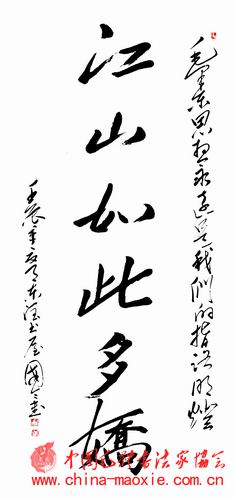 毛澤东思想永远是我們的指路明燈
江山如此多嬌
壬辰年夏月东
中國毛體書法家協會
www.china-maoxie.com.cn